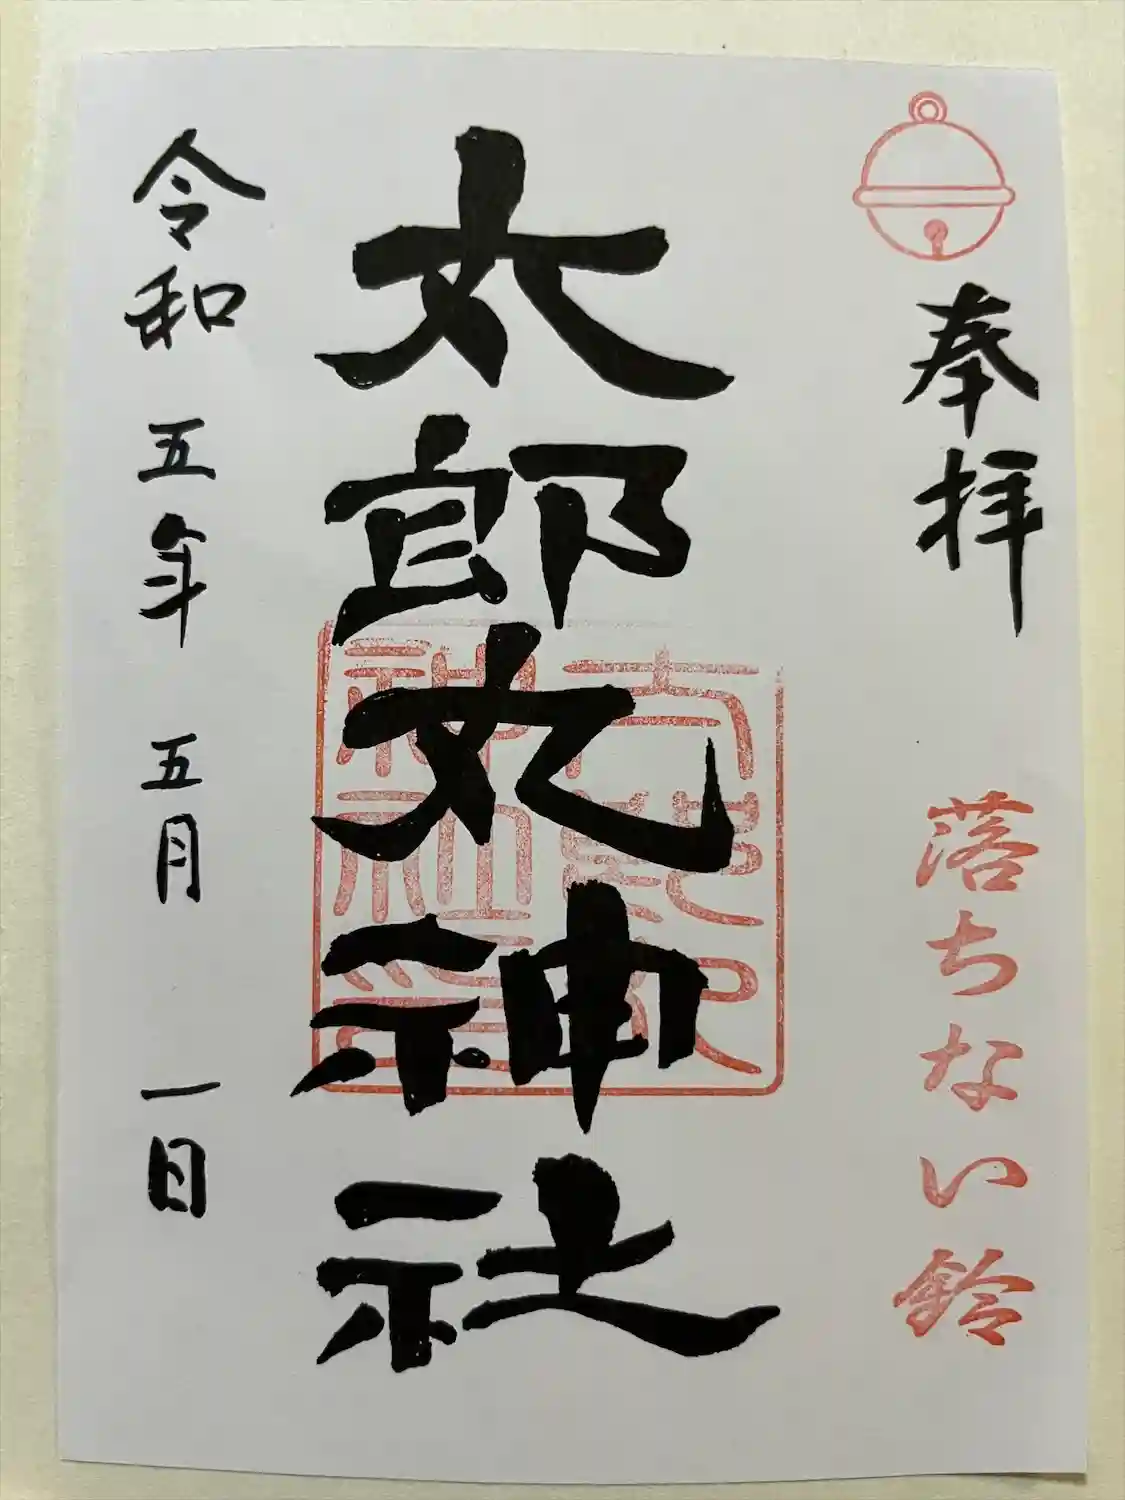 奉拝
落ちない鈴
太郎丸神社
令和五年五月一日